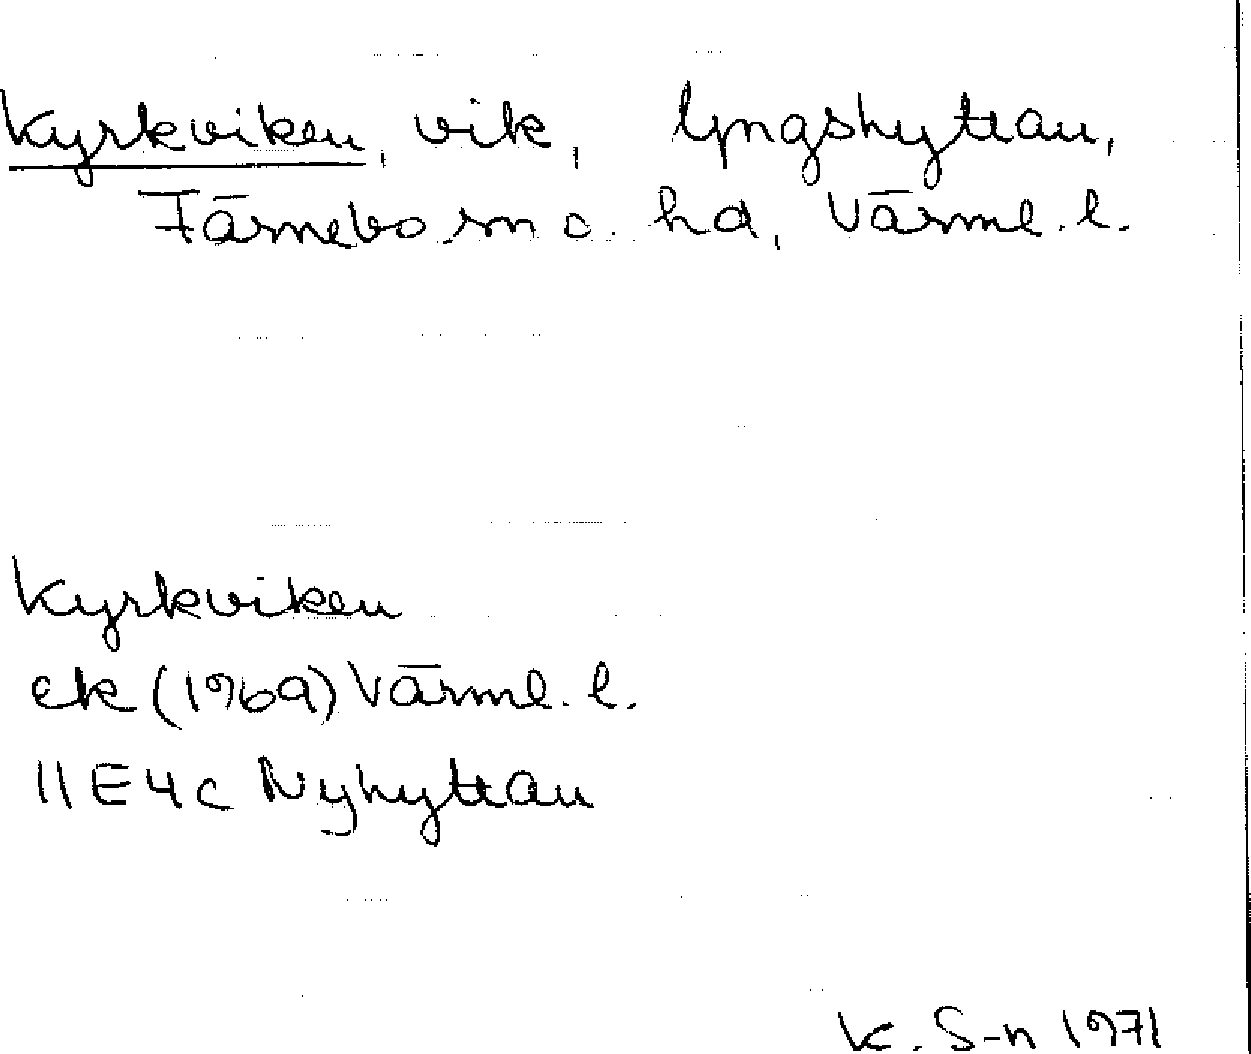 Kyrkviken, vik, lyngshyttan,
Färnebo sn o. hd, Värml. l.
Kyrkviken
ek (1969) Värml. l.
11E4c Nyhyttan
K. S-n 1971